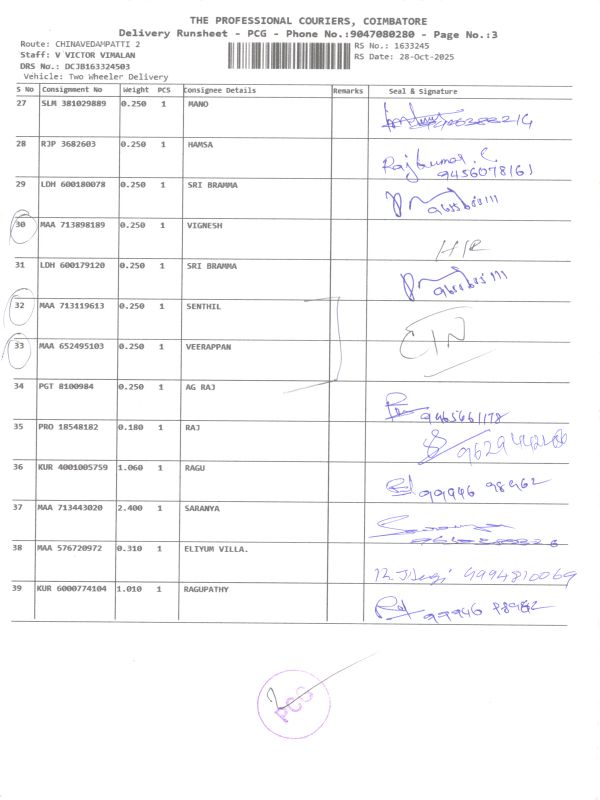 THE PROFESSIONAL COURIERS, COIMBATORE
Delivery Runsheet - PCG - Phone No.:9047080280 - Page No.:3
Route: CHINAVEDAMPATTI 2 RS No.: 1633245
Staff: V VICTOR VIMALAN RS Date: 28-Oct-2025
DRS No.: DCJB163324503
Vehicle: Two Wheeler Delivery
S No Consignment No Weight PCS Consignee Details Remarks Seal & Signature
27 SLM 381029889 0.250 1 MANO
28 RJP 3682603 0.250 1 HAMSA Rajkumar. C
9456078161
29 LDH 600180078 0.250 1 SRI BRAMMA
30 MAA 713898189 0.250 1 VIGNESH
31 LDH 600179120 0.250 1 SRI BRAMMA
32 MAA 713119613 0.250 1 SENTHIL
33 MAA 652495103 0.250 1 VEERAPPAN
34 PGT 8100984 0.250 1 AG RAJ 9465661178
35 PRO 18548182 0.180 1 RAJ
36 KUR 4001005759 1.060 1 RAGU 99946 98962
37 MAA 713443020 2.400 1 SARANYA
38 MAA 576720972 0.310 1 ELIYUM VILLA. 9994810069
39 KUR 6000774104 1.010 1 RAGUPATHY 99946 98962
PCG